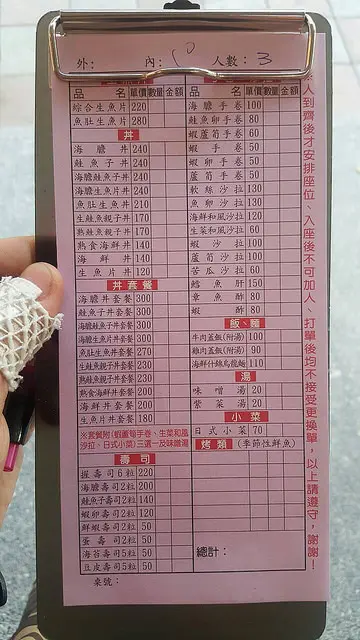 外： 內： 人數： 3
品 名 單價 數量 金額
綜合生魚片 220
魚肚生魚片 280
丼
海膽丼 240
鮭魚子丼 240
海膽鮭魚子丼 240
海膽生魚片丼 240
魚肚生魚丼 210
生鮭魚親子丼 170
熟鮭魚親子丼 170
熟食海鮮丼 140
海鮮丼 140
生魚片丼 120
丼套餐
海膽丼套餐 300
鮭魚子丼套餐 300
海膽鮭魚子丼套餐 300
海膽生魚片丼套餐 300
魚肚生魚丼套餐 270
生鮭魚親子丼套餐 230
熟鮭魚親子丼套餐 230
熟食海鮮丼套餐 200
海鮮丼套餐 200
生魚片丼套餐 180
※套餐附(蝦蘆筍手卷、生菜和風
沙拉、日式小菜)三選一及味噌湯
壽司
握壽司6粒 220
海膽壽司2粒 200
鮭魚子壽司2粒 140
蝦卵壽司2粒 120
鮮蝦壽司2粒 50
蛋壽司2粒 50
海苔壽司5粒 50
豆皮壽司5粒 50
桌號：
品 名 單價 數量 金額
海膽手卷 100
鮭魚卵手卷 80
蝦蘆筍手卷 60
蝦手卷 50
蝦卵手卷 50
蘆筍手卷 50
軟絲沙拉 130
魚卵沙拉 130
海鮮和風沙拉 120
生菜和風沙拉 60
蝦沙拉 100
蘆筍沙拉 100
苦瓜沙拉 60
鱈魚肝 150
章魚酢 80
蝦酢 80
飯、麵
牛肉蓋飯(附湯) 100
雞肉蓋飯(附湯) 90
海鮮什錦烏龍麵 110
湯
味噌湯 20
紫菜湯 20
小菜
日式小菜 70
烤類 (季節性鮮魚)
總計：
人到齊後才安排座位、入座後不可加人、打單後均不接受更換單，以上請遵守，謝謝！